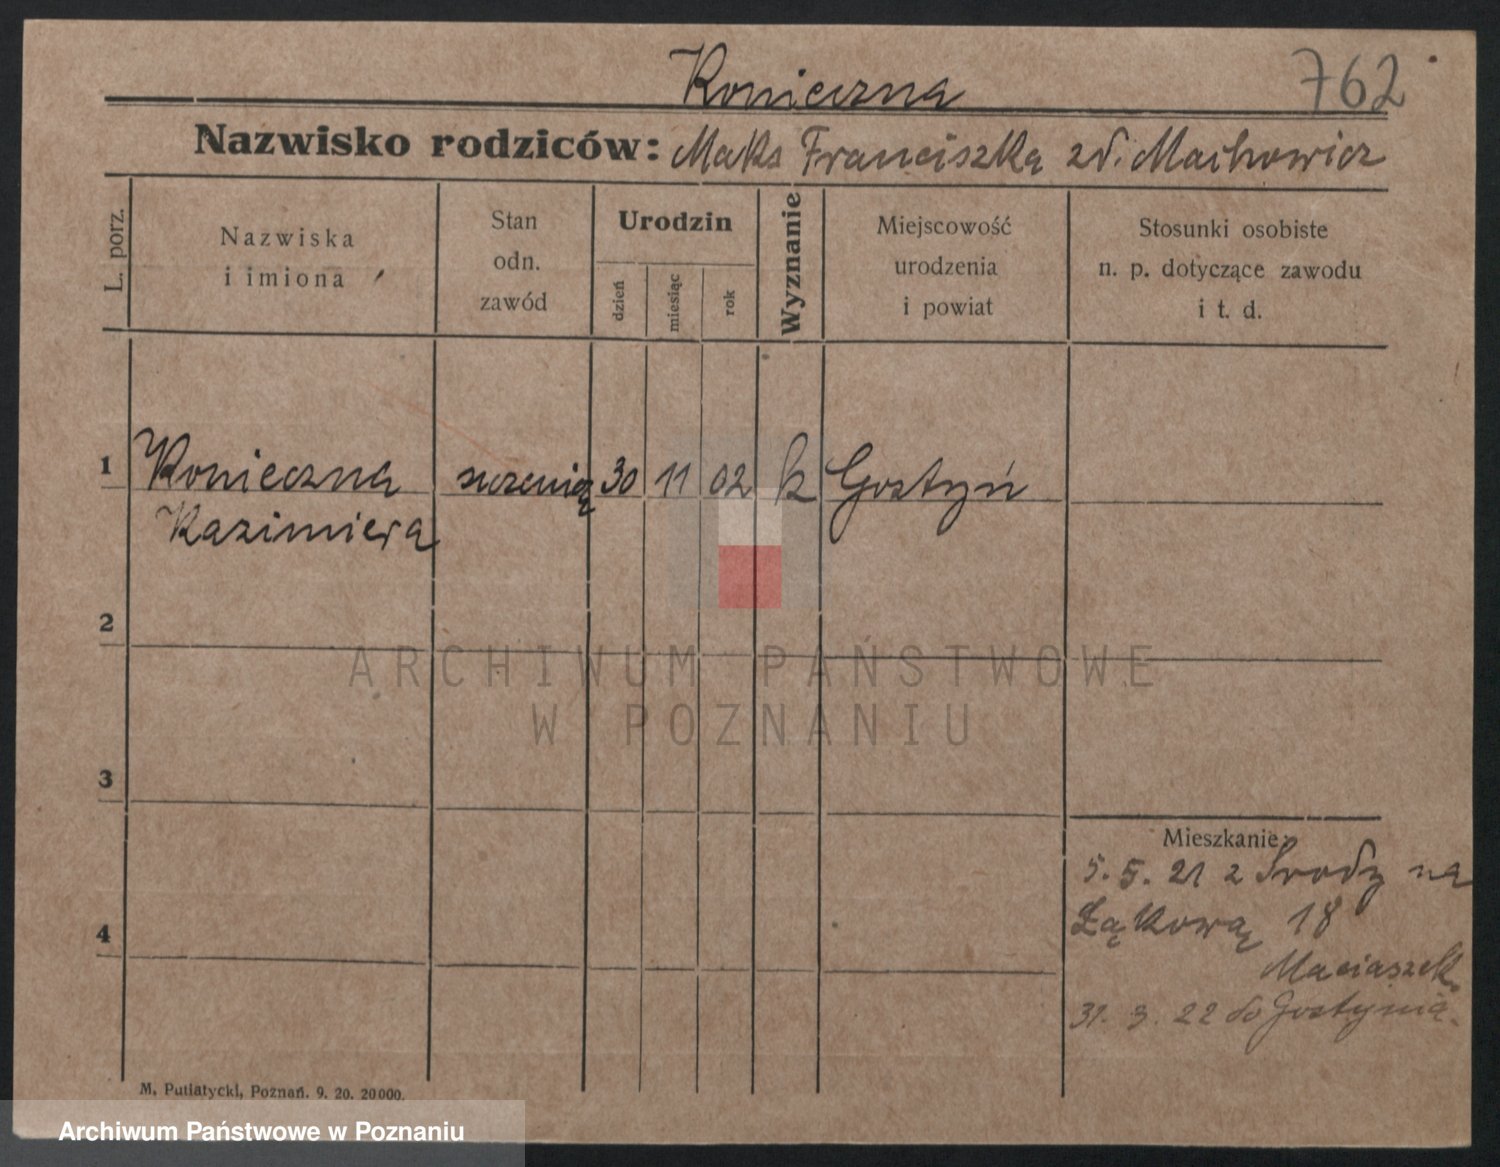 Konieczna
762
Nazwisko rodziców: Maks Franciszka zd. Machowicz
L. porz.
Nazwiska i imiona
Stan odn. zawód
Urodzin
dzień
miesiąc
rok
Wyznanie
Miejscowość urodzenia i powiat
Stosunki osobiste n. p. dotyczące zawodu i t. d.
1 Konieczna uczenica 30 11 02 k Gostyń
Kazimiera
2
3
4
Mieszkanie:
5. 5. 21 z Środy na
Łąkową 18
Maciaszek
31. 3. 22 do Gostynia.
M. Putiatycki, Poznań. 9. 20. 20000.
ARCHIWUM PAŃSTWOWE
W POZNANIU
Archiwum Państwowe w Poznaniu